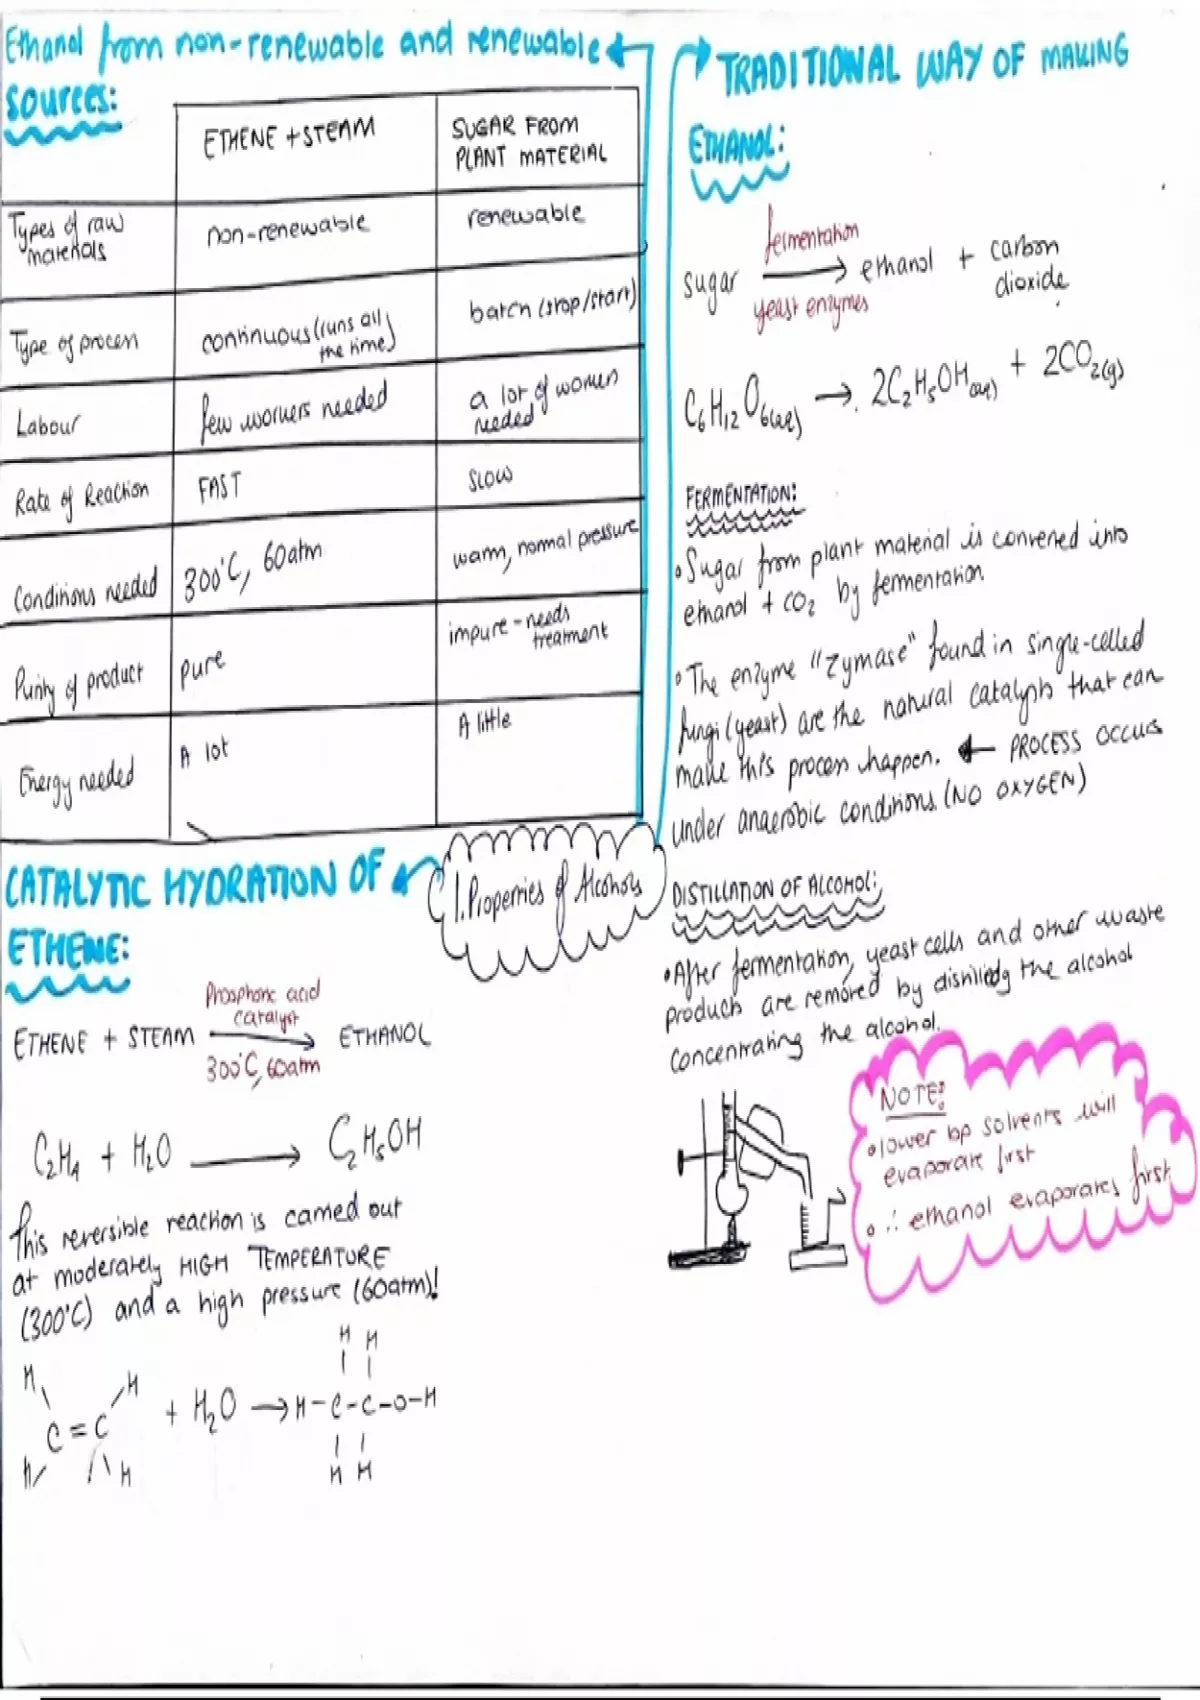 Ethanol from non-renewable and renewable
sources:
ETHENE + STEAM
SUGAR FROM
PLANT MATERIAL
Types of raw
materials
non-renewable
renewable
Type of process
continuous (runs all
the time)
batch (stop/start)
Labour
few workers needed
a lot of workers
needed
Rate of Reaction
FAST
SLOW
Conditions needed
300°C, 60atm
warm, normal pressure
Purity of product
pure
impure - needs
treatment
Energy needed
A lot
A little
1. Properties of Alcohols
CATALYTIC HYDRATION OF
ETHENE:
Phosphoric acid
catalyst
ETHENE + STEAM → ETHANOL
300°C, 60atm
C₂H₄ + H₂O → C₂H₅OH
This reversible reaction is carried out
at moderately HIGH TEMPERATURE
(300°C) and a high pressure (60atm)!
H H
H H
C = C + H₂O → H-C-C-O-H
H H
H H
TRADITIONAL WAY OF MAKING
ETHANOL:
fermentation
sugar → ethanol + carbon
dioxide
yeast enzymes
C₆H₁₂O₆(aq) → 2C₂H₅OH(aq) + 2CO₂(g)
FERMENTATION:
• Sugar from plant material is converted into
ethanol + CO₂ by fermentation
• The enzyme "zymase" found in single-celled
fungi (yeast) are the natural catalysts that can
make this process happen. ← PROCESS OCCURS
under anaerobic conditions. (NO OXYGEN)
DISTILLATION OF ALCOHOL:
• After fermentation, yeast cells and other waste
products are removed by distilling the alcohol
concentrating the alcohol.
NOTE:
• lower bp solvents will
evaporate first
• ∴ ethanol evaporates first